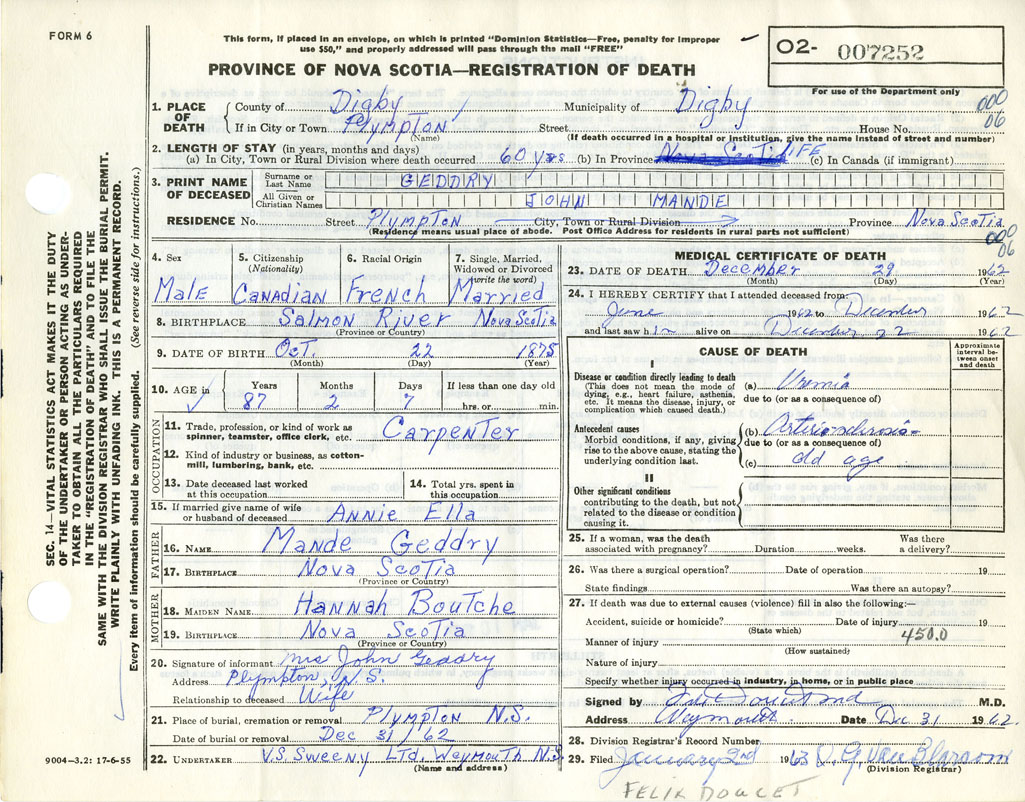 FORM 6
This form, if placed in an envelope, on which is printed "Dominion Statistics—Free, penalty for improper
use $50," and properly addressed will pass through the mail "FREE"
PROVINCE OF NOVA SCOTIA—REGISTRATION OF DEATH
02- 007252
For use of the Department only
000
06
1. PLACE OF DEATH County of Digby Municipality of Digby
If in City or Town Plympton Street House No.
(Name) (If death occurred in a hospital or institution, give the name instead of street and number)
2. LENGTH OF STAY (in years, months and days)
(a) In City, Town or Rural Division where death occurred 60 yrs (b) In Province Nova Scotia LIFE (c) In Canada (if immigrant)
3. PRINT NAME OF DECEASED Surname or Last Name GEDDRY
All Given or Christian Names JOHN MANDE
RESIDENCE No. Street Plympton City, Town or Rural Division Province Nova Scotia
(Residence means usual place of abode. Post Office Address for residents in rural parts not sufficient)
000
06
4. Sex 5. Citizenship (Nationality) 6. Racial Origin 7. Single, Married, Widowed or Divorced (write the word)
Male Canadian French Married
8. BIRTHPLACE Salmon River Nova Scotia
(Province or Country)
9. DATE OF BIRTH Oct. 22 1875
(Month) (Day) (Year)
10. AGE in Years Months Days If less than one day old
87 2 7 hrs. or min.
OCCUPATION
11. Trade, profession, or kind of work as spinner, teamster, office clerk, etc. Carpenter
12. Kind of industry or business, as cotton-mill, lumbering, bank, etc.
13. Date deceased last worked at this occupation 14. Total yrs. spent in this occupation
15. If married give name of wife or husband of deceased Annie Ella
FATHER
16. NAME Mande Geddry
17. BIRTHPLACE Nova Scotia
(Province or Country)
MOTHER
18. MAIDEN NAME Hannah Boutche
19. BIRTHPLACE Nova Scotia
(Province or Country)
20. Signature of informant Mrs John Geddry
Address Plympton, N.S.
Relationship to deceased Wife
21. Place of burial, cremation or removal Plympton N.S.
Date of burial or removal Dec 31 / 62
22. UNDERTAKER V.S. Sweeny Ltd, Weymouth N.S.
(Name and address)
MEDICAL CERTIFICATE OF DEATH
23. DATE OF DEATH December 29 1962
(Month) (Day) (Year)
24. I HEREBY CERTIFY that I attended deceased from:
June 1962 to December 1962
and last saw him alive on December 22 1962
CAUSE OF DEATH
Approximate interval between onset and death
I
Disease or condition directly leading to death
(This does not mean the mode of dying, e.g., heart failure, asthenia, etc. It means the disease, injury, or complication which caused death.)
(a) Uremia
due to (or as a consequence of)
Antecedent causes
Morbid conditions, if any, giving rise to the above cause, stating the underlying condition last.
(b)
due to (or as a consequence of)
(c) old age
II
Other significant conditions
contributing to the death, but not related to the disease or condition causing it.
25. If a woman, was the death associated with pregnancy? Duration weeks. Was there a delivery?
26. Was there a surgical operation? Date of operation 19
State findings Was there an autopsy?
27. If death was due to external causes (violence) fill in also the following:—
Accident, suicide or homicide? Date of injury 19
(State which)
450.0
Manner of injury
(How sustained)
Nature of injury
Specify whether injury occurred in industry, in home, or in public place
Signed by M.D.
Address Weymouth. Date Dec 31 1962
28. Division Registrar's Record Number
29. Filed January 2nd 1963
(Division Registrar)
FELIX DOUCET
9004—3.2: 17-6-55
SEC. 14—VITAL STATISTICS ACT MAKES IT THE DUTY
OF THE UNDERTAKER OR PERSON ACTING AS UNDER-
TAKER TO OBTAIN ALL THE PARTICULARS REQUIRED
IN THE "REGISTRATION OF DEATH" AND TO FILE THE
SAME WITH THE DIVISION REGISTRAR WHO SHALL ISSUE THE BURIAL PERMIT.
WRITE PLAINLY WITH UNFADING INK. THIS IS A PERMANENT RECORD.
Every item of information should be carefully supplied. (See reverse side for instructions.)